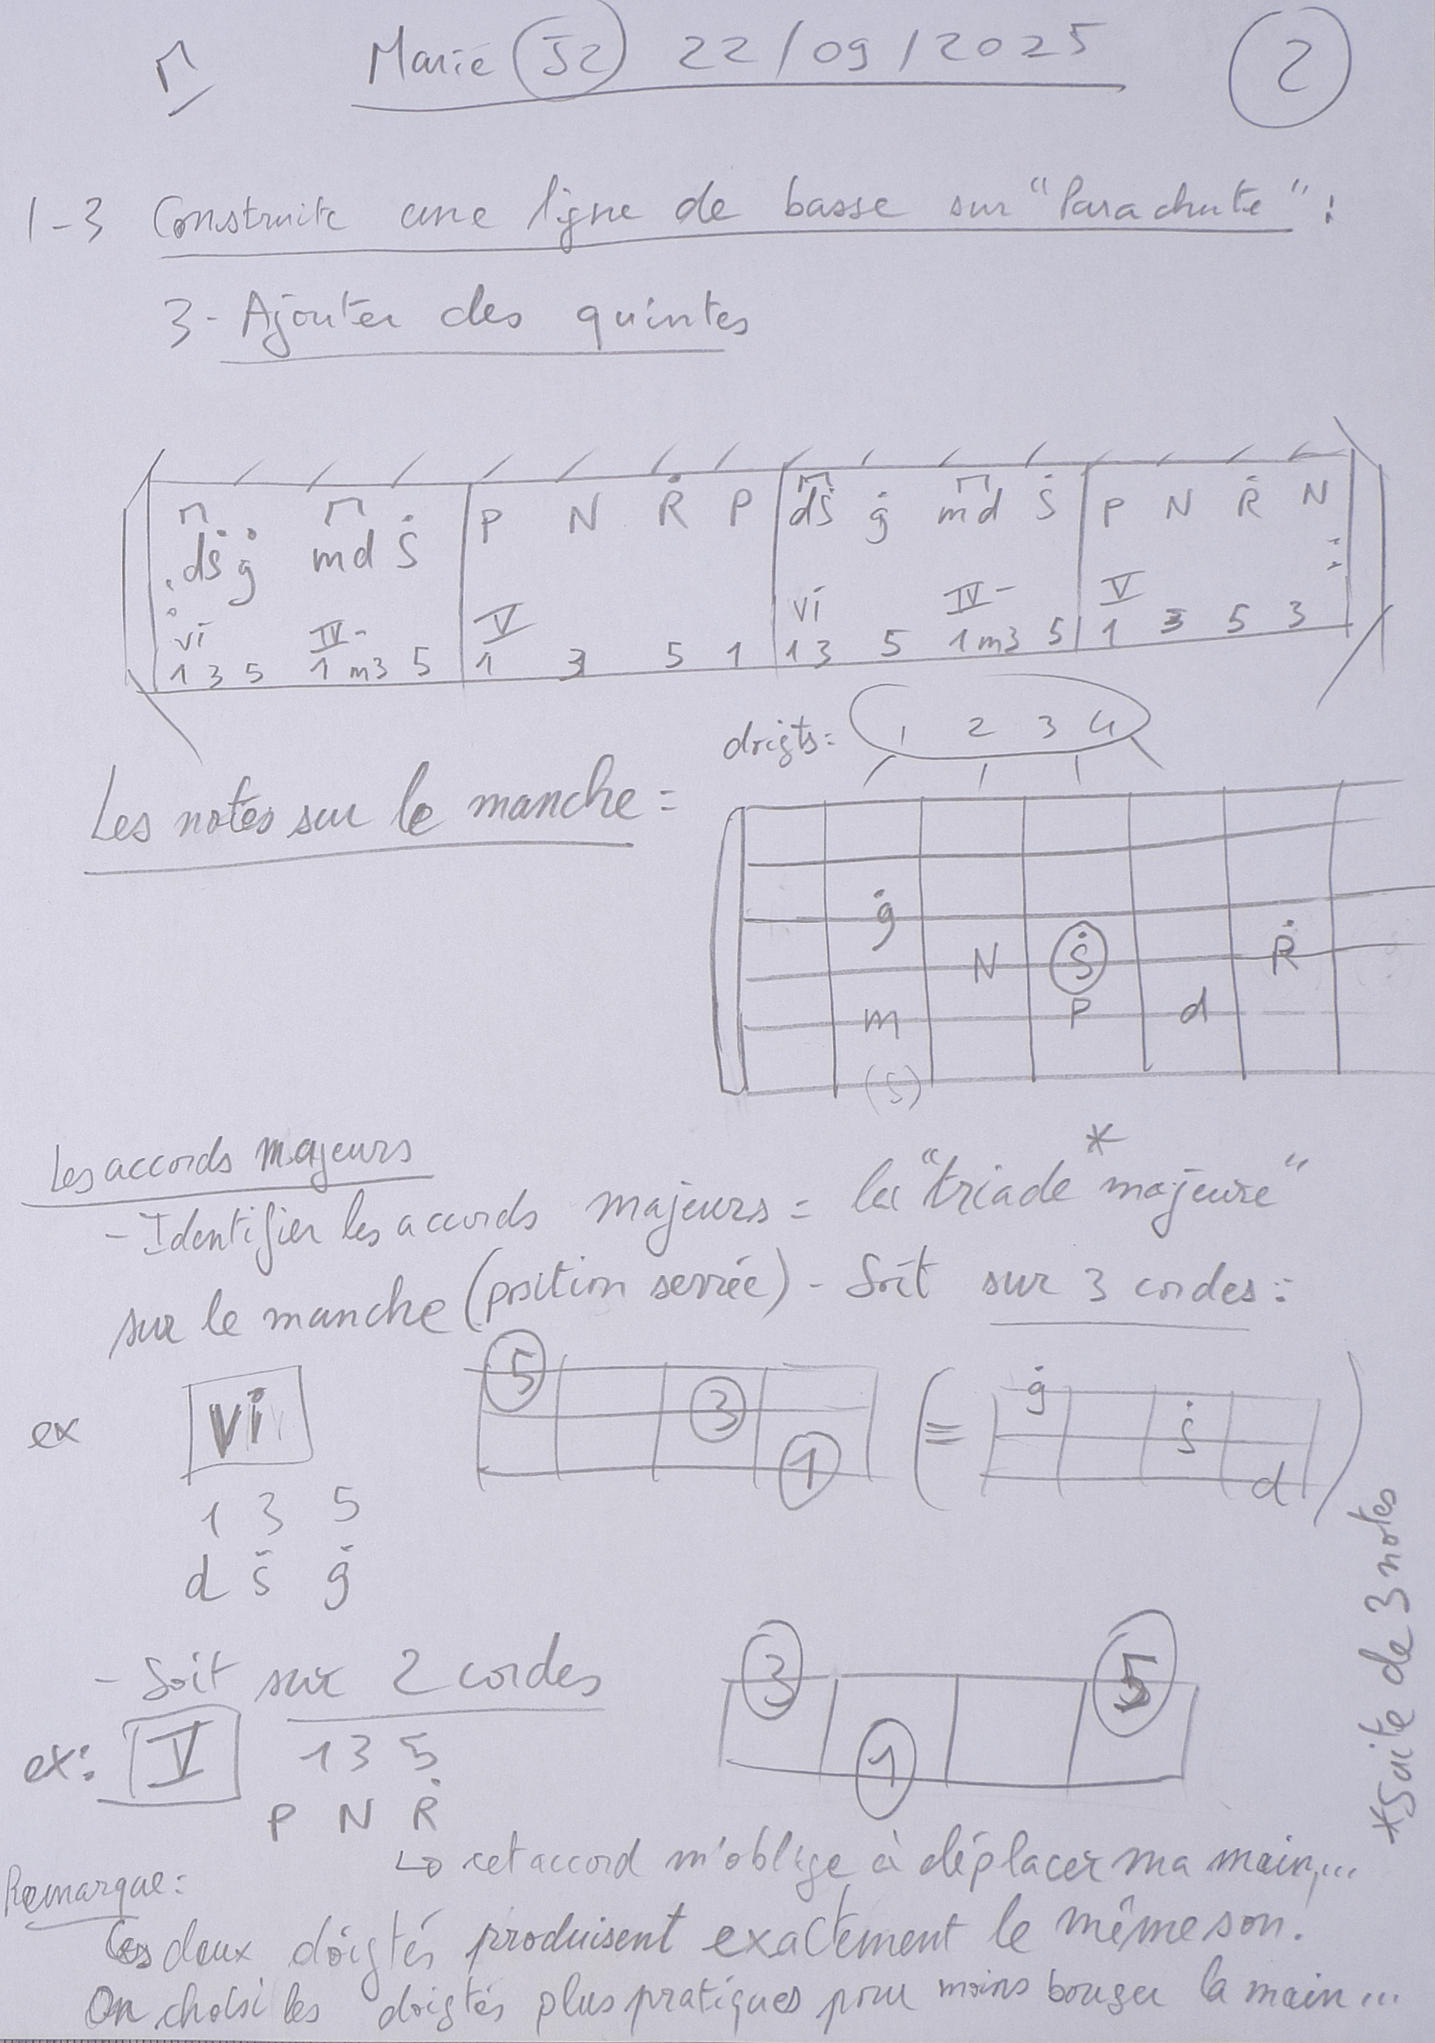 Marie J2 22/09/2025 2
1-3 Construite une ligne de basse sur "Parachute" :
3- Ajouter des quintes
dṡ ġ md ṡ P N Ṙ P dṡ ġ md ṡ P N Ṙ N
vi IV- V vi IV- V
1 3 5 1 m3 5 1 3 5 1 1 3 5 1 m3 5 1 3 5 3
doigts: 1 2 3 4
Les notes sur le manche =
ġ
N Ṡ Ṙ
m P d
(S)
Les accords majeurs
- Identifier les accords majeurs = la "triade* majeure"
sur le manche (position serrée) - Soit sur 3 cordes :
ex vi 5 3 1 (= ġ ṡ d)
1 3 5
d ṡ ġ
- Soit sur 2 cordes
ex: V 1 3 5
P N Ṙ
3 5
1
↳ cet accord m'oblige à déplacer ma main...
*Suite de 3 notes
Remarque :
Ces deux doigtés produisent exactement le même son.
On choisi les doigtés plus pratiques pour moins bouger la main...